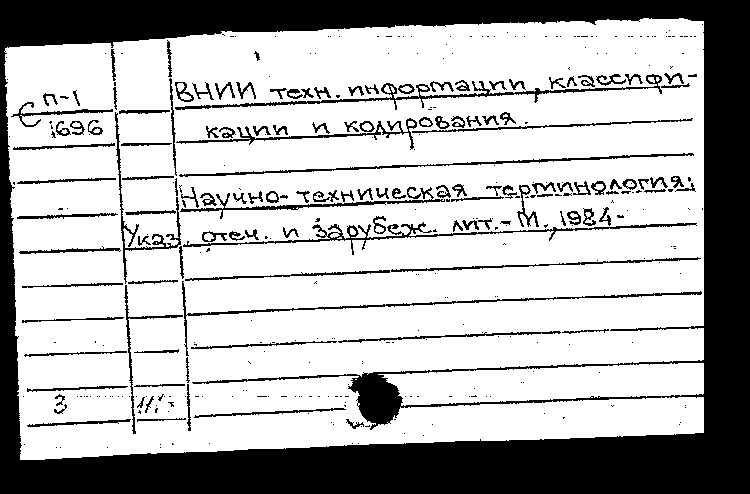 ВНИИ техн. информации, классифи-
С П-1
1696
кации и кодирования.
Научно-техническая терминология:
Указ. отеч. и зарубеж. лит.- М., 1984-
3